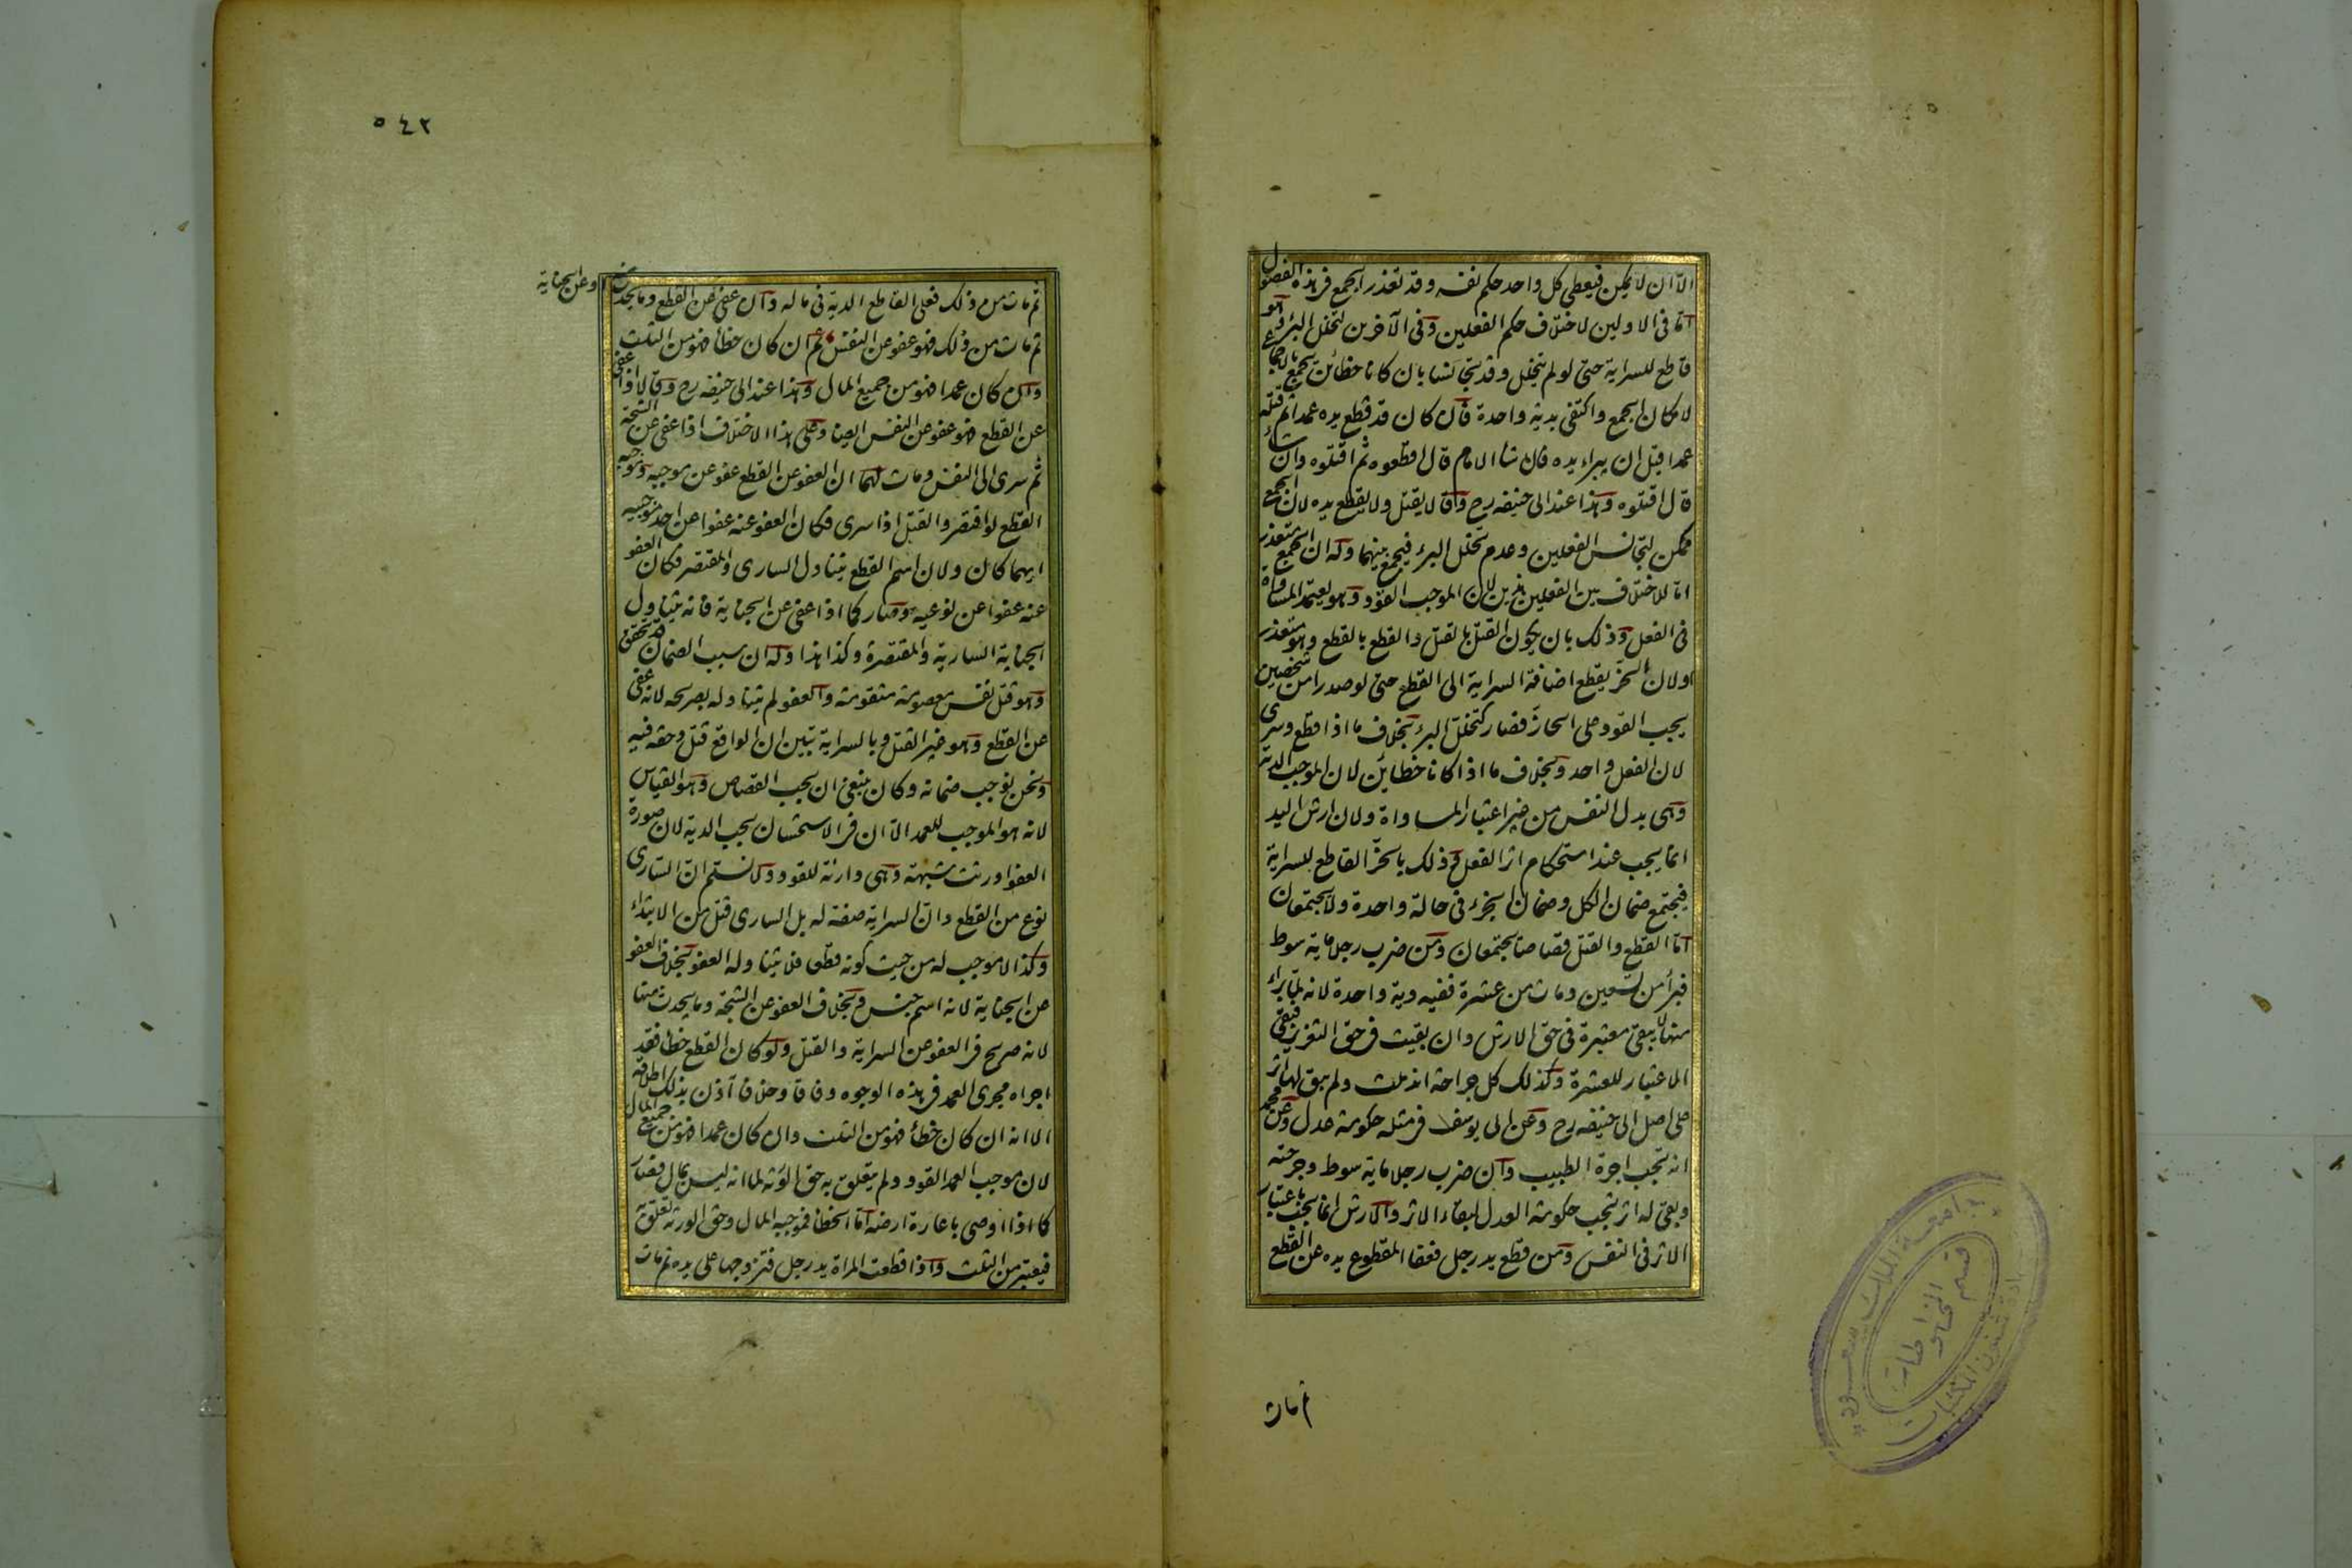 الا ان لا يمكن فيعطى كل واحد حكم نفسه وقد تعذر الجمع في هذه الفصول
اما في الاولين لاختلاف حكم الفعلين وفي الآخرين لتخلل البرء وهو
قاطع للسراية حتى لو لم يتخلل وقد تجانسا بان كانا خطأين يجمع بالاجماع
لامكان الجمع واكتفى بدية واحدة قال كان قد قطع يده عمدا ثم قتله
عمدا قبل ان يبراء يده فان شاء الامام قال اقطعوه ثم اقتلوه وان شاء
قال اقتلوه وهذا عند ابي حنيفه رح وقالا يقتل ولا يقطع يده لان الجمع
ممكن لتجانس الفعلين وعدم تخلل البرء فيجمع بينهما وله ان الجمع متعذر
اما للاختلاف بين الفعلين هذين لان الموجب القود وهو يعتمد المساواة
في الفعل وذلك بان يكون القتل بالقتل والقطع بالقطع وهو متعذر
اولان الحز يقطع اضافة السراية الى القطع حتى لو صدرا من شخصين
يجب القود على الحاز فصار كتخلل البرء بخلاف ما اذا قطع وسرى
لان الفعل واحد وبخلاف ما اذا كانا خطائين لان الموجب الدية
وهي بدل النفس من غير اعتبار المساواة ولان ارش اليد
انما يجب عند استحكام اثر الفعل وذلك بالحز القاطع للسراية
فيجتمع ضمان الكل وضمان الجزء في حالة واحدة ولا يجتمعان
اما القطع والقتل قصاصا يجتمعان ومن ضرب رجلا مائة سوط
فبرأ من تسعين ومات من عشرة ففيه دية واحدة لانه لما براء
منها لا يبقى معتبرة في حق الارش وان بقيت في حق التعزير فبقى
الاعتبار للعشرة وكذلك كل جراحة اندملت ولم يبق لها اثر
على اصل ابي حنيفه رح وعن ابي يوسف في مثله حكومة عدل وعن محمد
انه تجب اجرة الطبيب وان ضرب رجلا مائة سوط وجرحته
وبقى له اثر تجب حكومة العدل لبقاء الاثر والارش انما يجب باعتبار
الاثر في النفس ومن قطع يد رجل فعفا المقطوع يده عن القطع
ثم مات
٥٤٢
ثم مات من ذلك فعلى القاطع الدية في ماله وان عفى عن القطع وما يحدث
او عن الجناية
ثم مات من ذلك فهو عفو عن النفس ثم ان كان خطأ فهو من الثلث
وان كان عمدا فهو من جميع المال وهذا عند ابي حنيفه رح وقالا اذا عفى
عن القطع فهو عفو عن النفس ايضا وعلى هذا الاختلاف اذا عفى عن الشجة
ثم سرى الى النفس ومات لهما ان العفو عن القطع عفو عن موجبه وموجبه
القطع لو اقتصر والقتل اذا سرى فكان العفو عنه عفوا عن احد موجبيه
ايهما كان ولان اسم القطع يتناول السارى والمقتصر فكان العفو
عنه عفوا عن نوعيه وصار كما اذا عفى عن الجناية فانه يتناول
الجناية السارية والمقتصرة وكذا هذا وله ان سبب الضمان قد تحقق
وهو قتل نفس معصومة متقومة والعفو لم يتناوله بصريحه لانه عفى
عن القطع وهو غير القتل وبالسراية تبين ان الواقع قتل وحقه فيه
ونحن نوجب ضمانه وكان ينبغي ان يجب القصاص وهو القياس
لانه هو الموجب للعمد الا ان في الاستحسان يجب الدية لان صورة
العفو اورثت شبهة وهي دارئة للقود ولا نسلم ان السارى
نوع من القطع وان السراية صفة له بل السارى قتل من الابتداء
وكذا لا موجب له من حيث كونه قطعا فلا يتناوله العفو بخلاف العفو
عن الجناية لانه اسم جنس وبخلاف العفو عن الشجة وما يحدث منها
لانه صريح في العفو عن السراية والقتل ولو كان القطع خطأ فقد
اجراه مجرى العمد في هذه الوجوه وفاقا وخلافا آذن بذلك اطلاقه
الا انه ان كان خطأ فهو من الثلث وان كان عمدا فهو من جميع المال
لان موجب العمد القود ولم يتعلق به حق الورثة لما انه ليس بمال فصار
كما اذا اوصى باعارة ارضه اما الخطأ فموجبه المال وحق الورثة يتعلق به
فيعتبر من الثلث واذا قطعت المراة يد رجل فتزوجها على يده ثم مات
جامعة الملك سعود
قسم المخطوطات